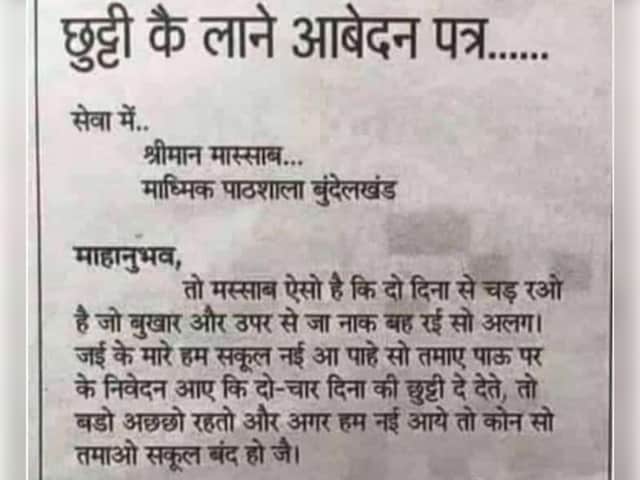 छुट्टी कै लाने आबेदन पत्र......
सेवा में..
श्रीमान मास्साब...
माध्मिक पाठशाला बुंदेलखंड
माहानुभव,
तो मस्साब ऐसो है कि दो दिना से चड़ रओ
है जो बुखार और उपर से जा नाक बह रई सो अलग।
जई के मारे हम सकूल नई आ पाहे सो तमाए पाऊ पर
के निवेदन आए कि दो-चार दिना की छुट्टी दे देते, तो
बडो अछ्छो रहतो और अगर हम नई आये तो कोन सो
तमाओ सकूल बंद हो जै।